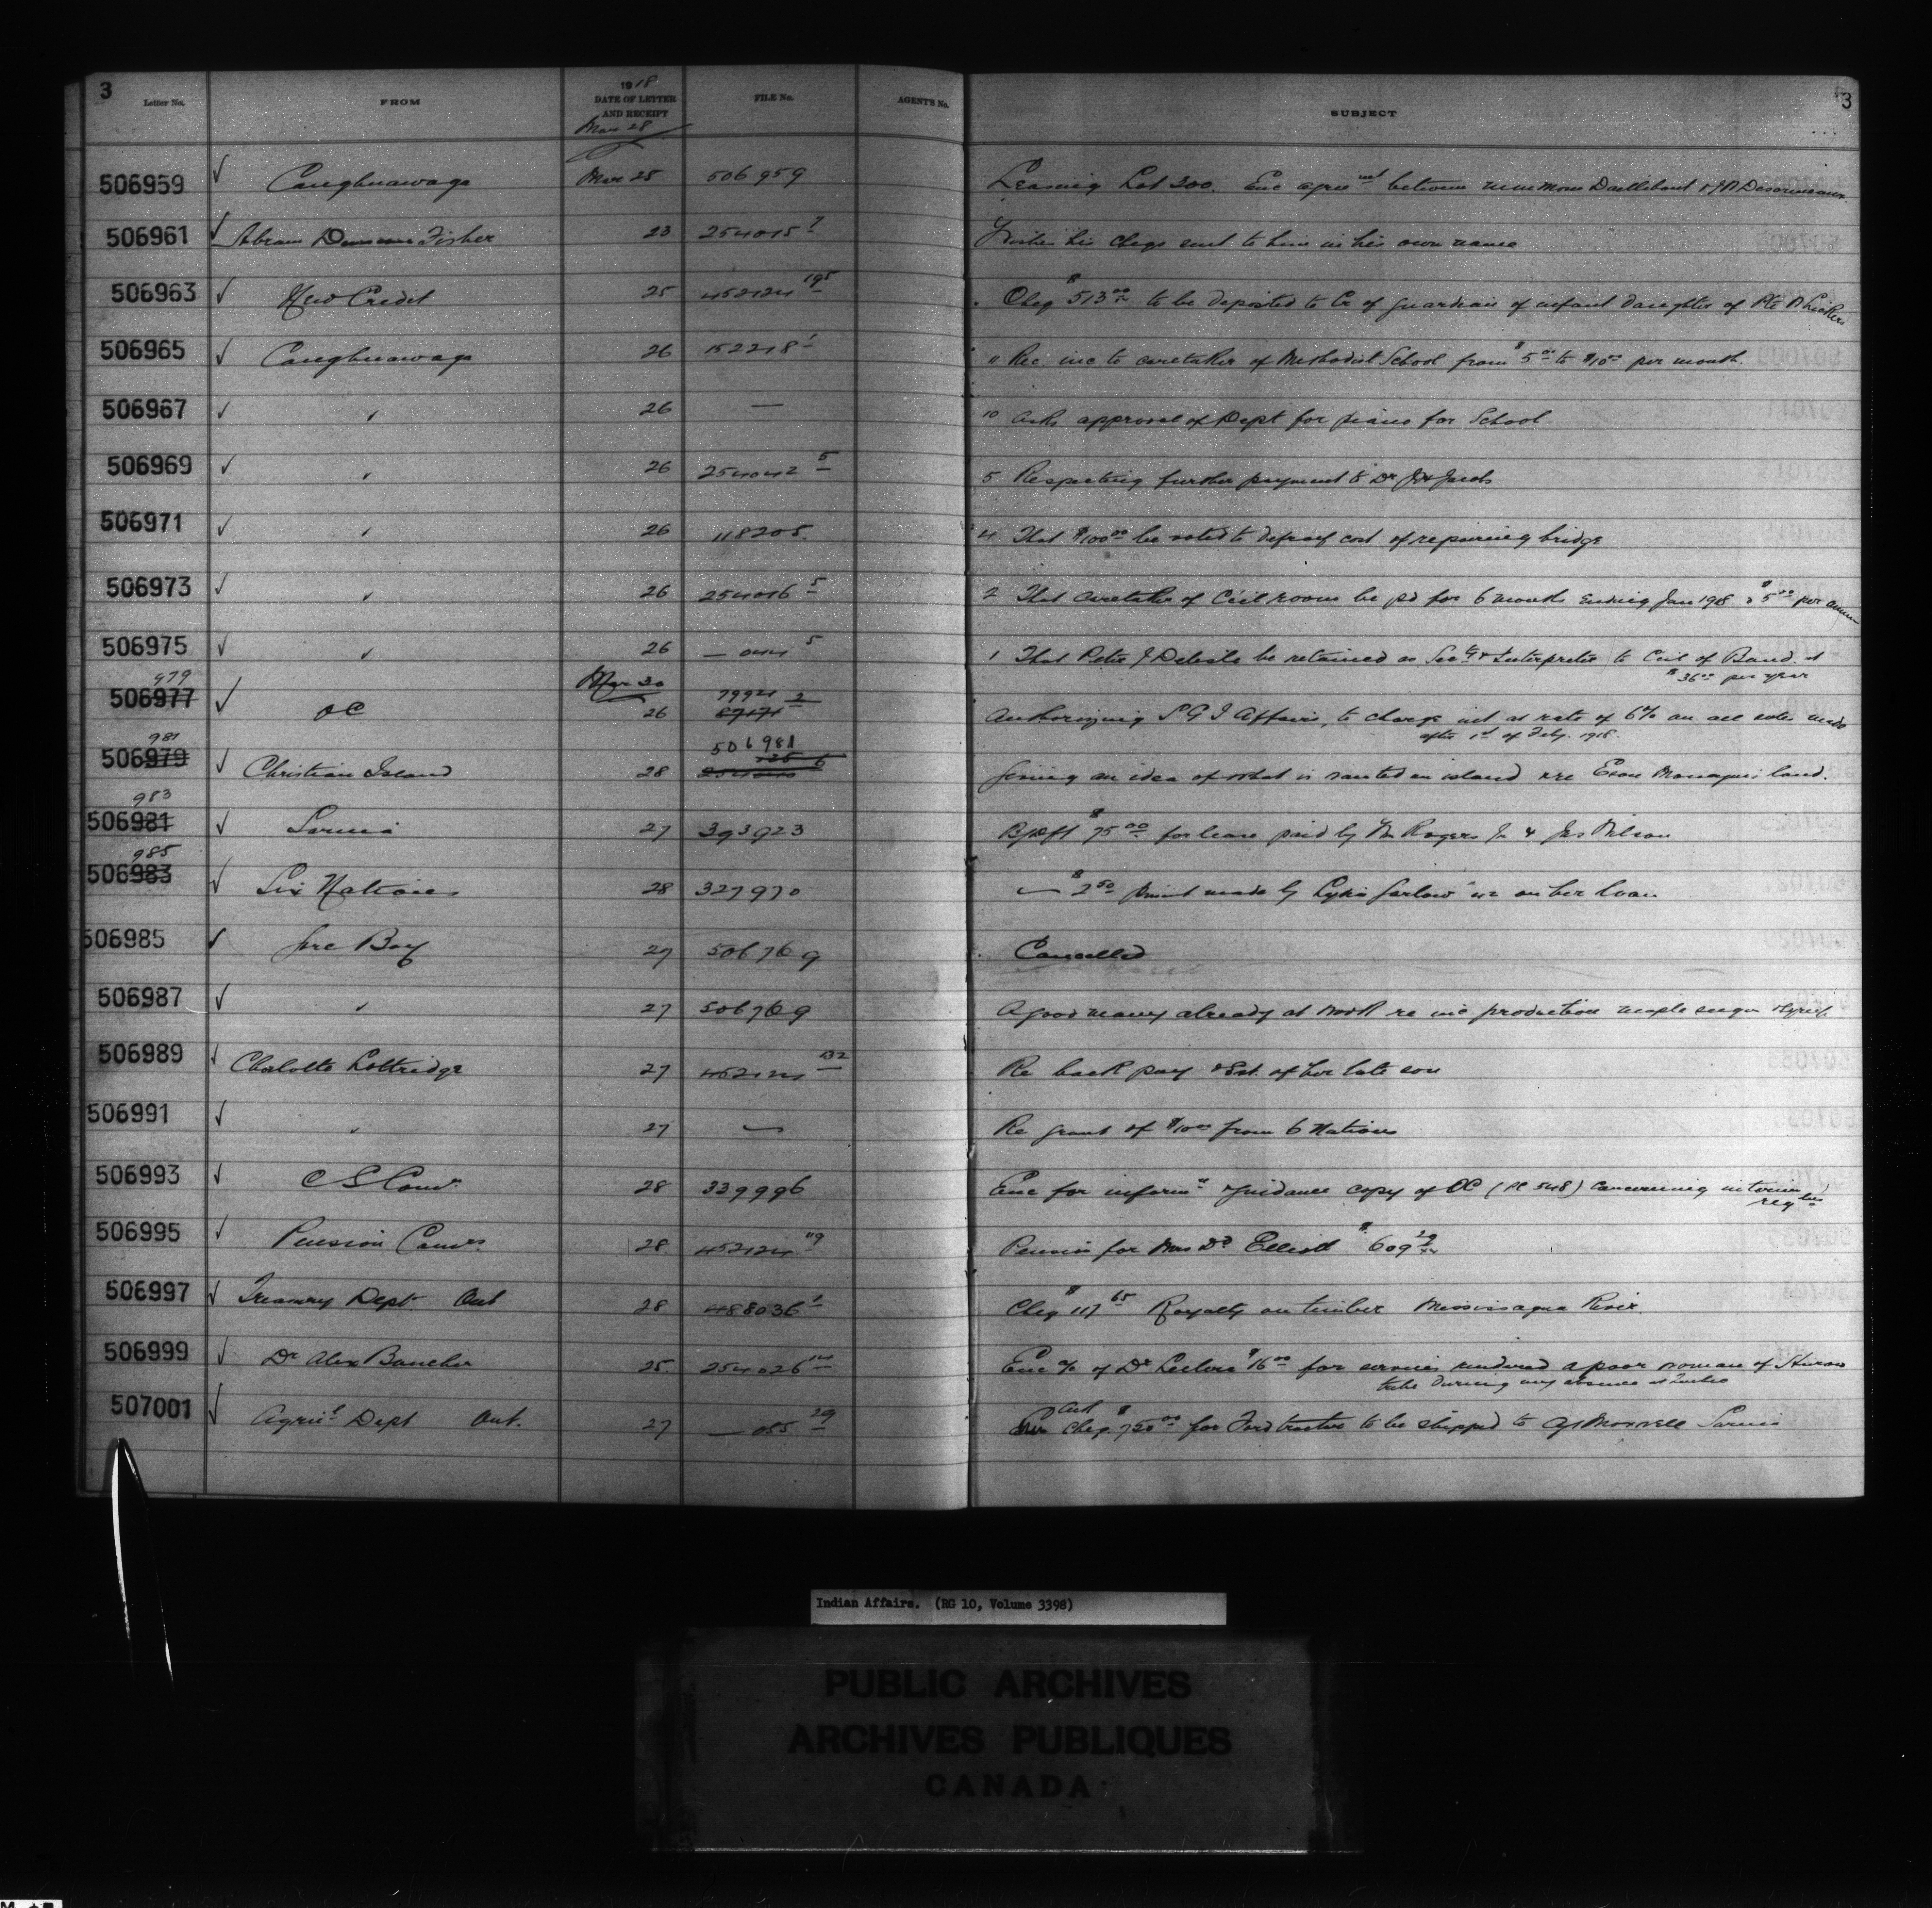 3
Letter No. FROM 1918 DATE OF LETTER AND RECEIPT FILE No. AGENT'S No. SUBJECT 3
Mar 28
506959 ✓ Caughnawaga Mar 25 506959 Leasing Lot 300. Enc agreemt between
506961 ✓ Abram Fisher 23 254015 7 Wishes his cheqs sent to him in his own name
506963 ✓ New Credit 25 452124 195 Cheq $513 00 to be deposited to Cr of guardian of infant daughter of Pte
506965 ✓ Caughnawaga 26 152218 1 11 Rec inc to caretaker of Methodist School from $5 00 to $10 00 per month.
506967 ✓ " 26 — 10 Asks approval of Dept for piano for School
506969 ✓ " 26 254042 5 5 Respecting further payment to Dr Jacobs
506971 ✓ " 26 118205. 4 That $100 00 be voted to defray cost of repairing bridge
506973 ✓ " 26 254016 5 2 That caretaker of Ccil room be pd for 6 months ending Jan 1918 @ $5 00 per annum
506975 ✓ " 26 — 044 5 1 That Peter J Delisle be retained as Secty & Interpreter to Ccil of Band at
$36 00 per year
Mar 30
979
506977 ✓ OC 26 79921 2 Authorizing S G I Affairs, to charge int at rate of 6% on all sales made
after 1st of Feby. 1918.
981
506979 ✓ Christian Island 28 506981 Giving an idea of what is wanted on island re land.
983
506981 ✓ Sarnia 27 393923 $75 00 for lease paid by Wm Rogers Jr & Jas Wilson
985
506983 ✓ Six Nations 28 327970 — $2 50 made by Lydia Garlow on her loan
506985 ✓ Gore Bay 27 506769 Cancelled
506987 ✓ " 27 506769 A good many already at work re inc production maple sugar & syrup
506989 ✓ Charlotte Lottridge 27 452124 132 Re back pay & Est. of her late son
506991 ✓ " 27 — Re grant of $10 00 from 6 Nations
506993 ✓ C S Comr. 28 339996 Enc for informn & guidance copy of OC (PC 548) concerning interim
regtns
506995 ✓ Pension Comrs 28 452124 119 Pension for Mrs Elliott $609
506997 ✓ Treasury Dept Ont 28 488036 1 Cheq $117 65 Royalty on timber Mississagua River.
506999 ✓ Dr Alex 25 254026 14 Enc a/c of Dr Leclerc $16 00 for services rendered a poor woman of Huron
tribe during my absence at Quebec
507001 ✓ Agricl Dept Ont. 27 — 055 29 Ack Cheq $750 00 for Ford tractor to be shipped to Sarnia
Indian Affairs. (RG 10, Volume 3398)
PUBLIC ARCHIVES
ARCHIVES PUBLIQUES
CANADA